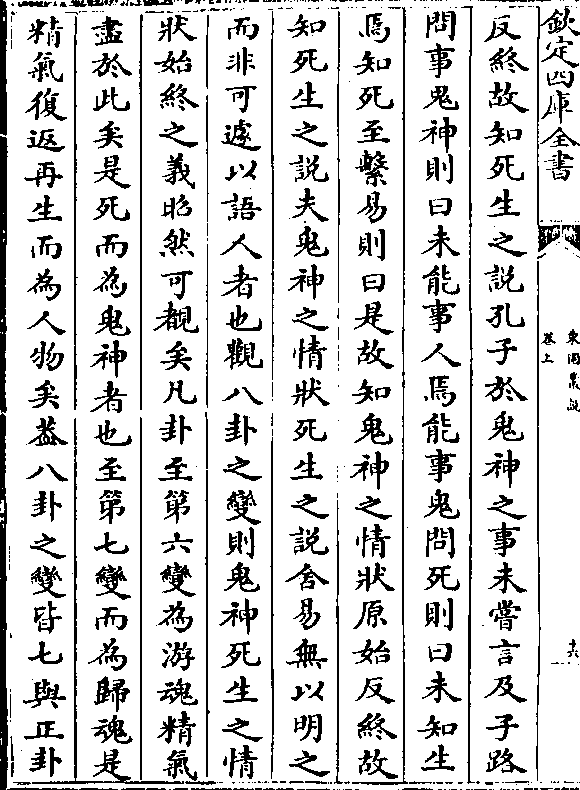 欽定四庫全書
東園叢説
卷上
十六
反終故知死生之説孔子於鬼神之事未嘗言及子路
問事鬼神則曰未能事人焉能事鬼問死則曰未知生
焉知死至繫易則曰是故知鬼神之情狀原始反終故
知死生之説夫鬼神之情狀死生之説舍易無以明之
而非可遽以語人者也觀八卦之變則鬼神死生之情
狀始終之義昭然可覩矣凡卦至第六變為游魂精氣
盡於此矣是死而為鬼神者也至第七變而為歸魂是
精氣復返再生而為人物矣葢八卦之變皆七與正卦